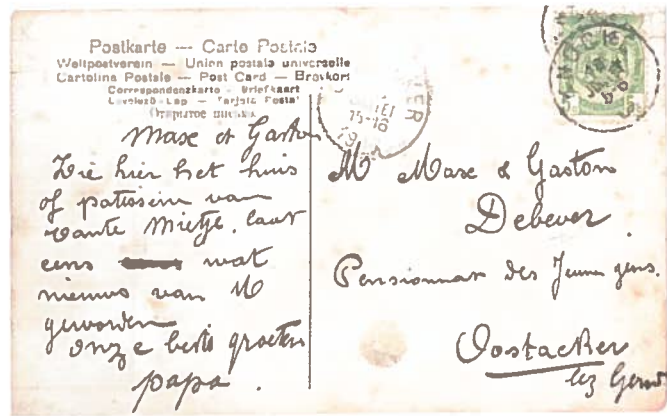 Postkarte — Carte Postale
Weltpostverein — Union postale universelle
Cartolina Postale — Post Card — Brevkort
Correspondenzkarte — Briefkaart
Levelező-Lap — Tarjeta Postal
Открытое письмо
Max et Gaston
Zie hier het huis
of patisserie van
tante Mietje, laat
eens wat
nieuws van U
geworden
onze beste groeten
papa.
M Max & Gaston
Debever
Pensionnat des Jeunes gens.
Oostacker
lez Gand
15-16